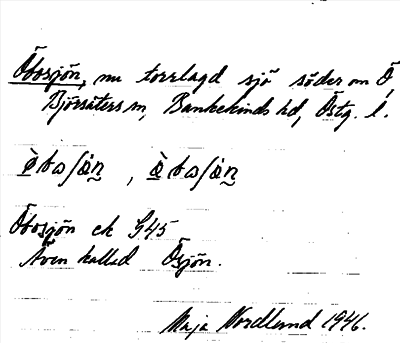 Öbosjön, nu torrlagd sjö söder om Ö
Björsäters sn, Bankekinds hd, Östg. l.
Öbosjön ek G45
Även kallad Ösjön.
Maja Nordlund 1946.